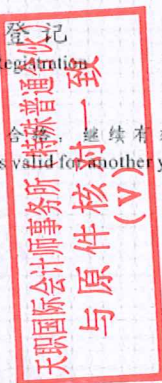 登 记
Registration
合格，继续有
s valid for another y
天职国际会计师事务所（特殊普通合伙）
与原件核对一致
（V）